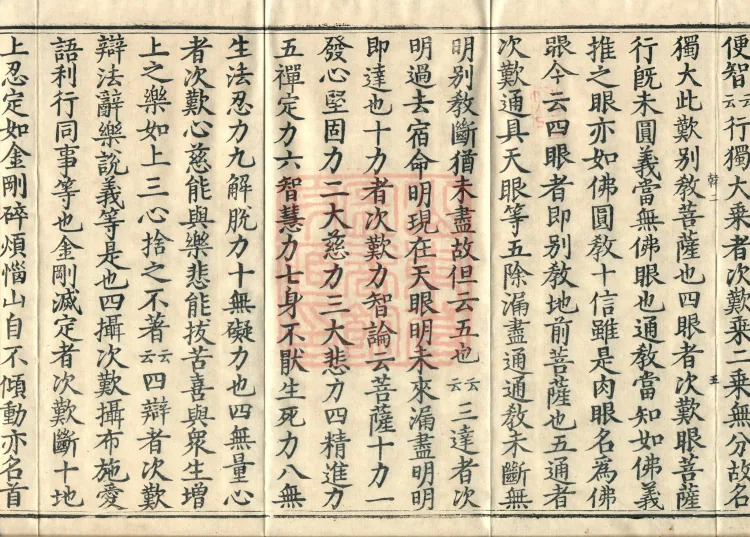 便智云云行獨大乘者次歎乘二乘無分故名
韓二
五
獨大此歎別教菩薩也四眼者次歎眼菩薩
行旣未圓義當無佛眼也通教當知如佛義
推之眼亦如佛圓教十信雖是肉眼名為佛
眼今云四眼者即別教地前菩薩也五通者
次歎通具天眼等五除漏盡通通教未斷無
明別教斷猶未盡故但云五也云云三達者次
明過去宿命明現在天眼明未來漏盡明明
即達也十力者次歎力智論云菩薩十力一
發心堅固力二大慈力三大悲力四精進力
五禪定力六智慧力七身不猒生死力八無
生法忍力九解脫力十無礙力也四無量心
者次歎心慈能與樂悲能拔苦喜與衆生增
上之樂如上三心捨之不著云云四辯者次歎
辯法辭樂說義等是也四攝次歎攝布施愛
語利行同事等也金剛滅定者次歎斷十地
上忍定如金剛碎煩惱山自不傾動亦名首